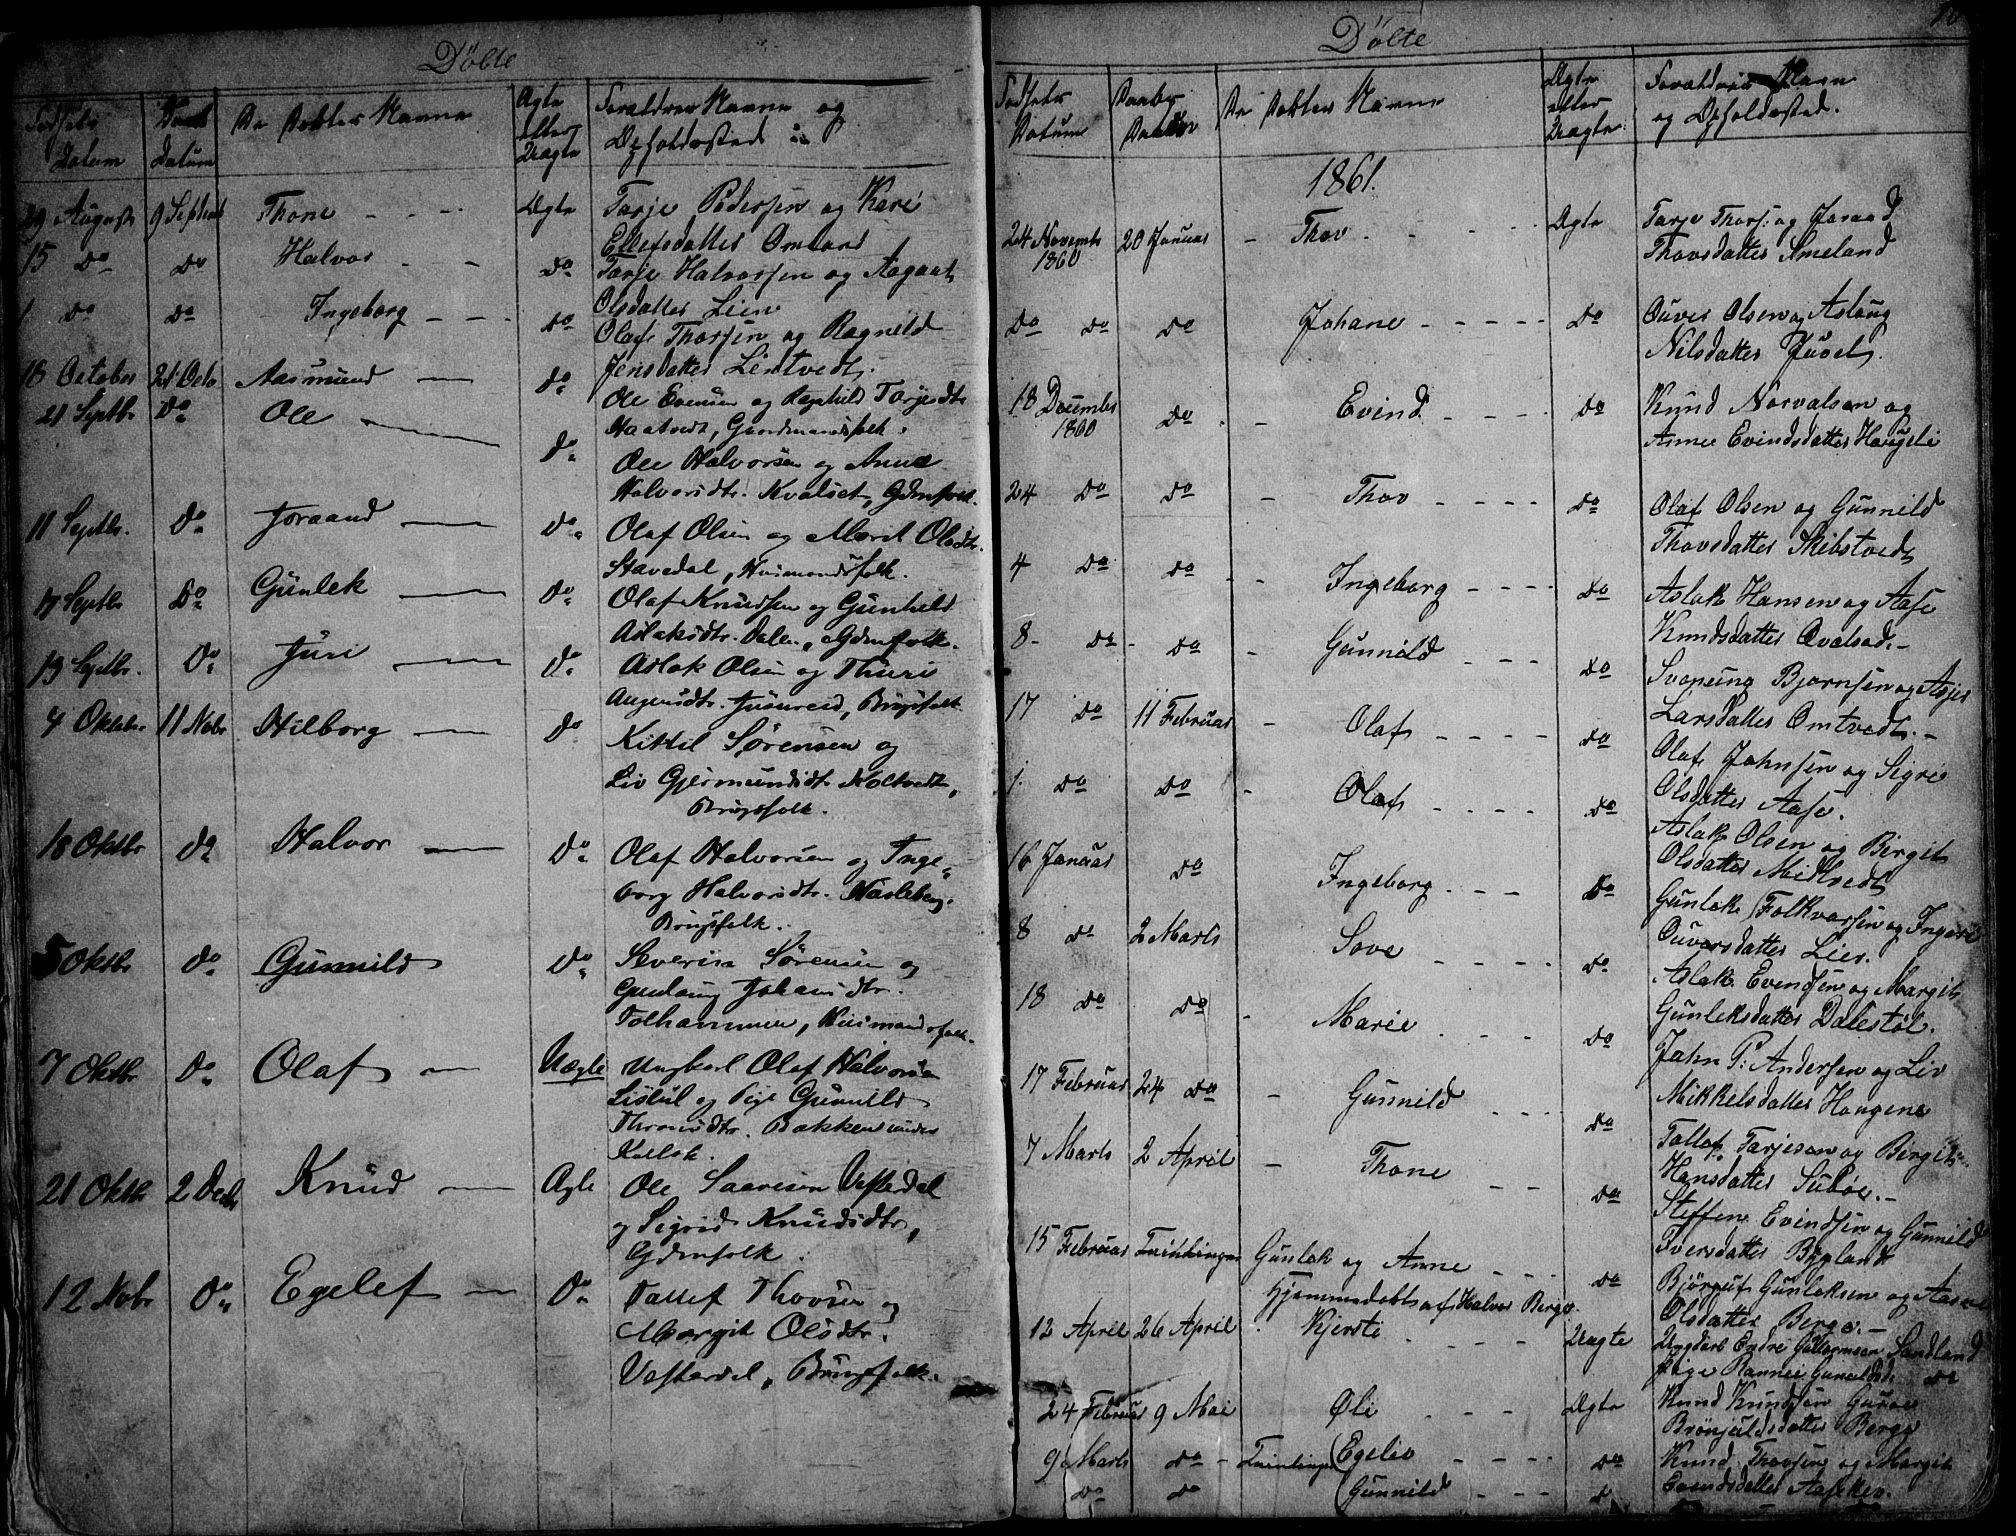 Døbte
Fødsels Datum
Daabs Datum
De Døbtes Navne
Ægte eller Uægte
Forældrenes Navne og Opholdssted
29 August 9 Septemb Thone - - - Ægte Tarje Pedersen og Kari
Ellefsdatter Omland
15 do do Halvor - - do Tarje Halvorsen og Aagaat
Olsdatter Lien
1 do do Ingeborg - - - do Olaf Thorsen og Ragnild
Jensdatter Lintvedt.
18 October 21 Octo Aasmund — do Ole Evensen og Ragnhild Tarjesdtr
Haatvedt, Gaardmandsfolk.
21 Septbr do Ole — do Ole Halvorsen og Anne
Halvorsdtr. Kvalset, Gdmfolk.
11 Septbr. do Joraand — do Olaf Olsen og Marit Olsdtr.
Stavedal, Husmandsfolk.
17 Septbr do Gunlek — do Olaf Knudsen og Gunhild
Aslaksdtr. Dalen, Gdmfolk.
19 Septbr. do Juri — do Aslak Olsen og Thuri
Brugsfolk
4 Oktober 11 Nobr Hilborg — do Kittil Sørensen og
Liv Gjermundsdtr Holtvedt,
Brugsfolk.
18 Oktbr do Halvor — do Olaf Halvorsen og Inge-
borg Halvorsdtr.
Brugsfolk.
5 Oktbr do Gunnild do Severin Sørensen og
Gunlaug Johansdtr.
Tolhammeren, Husmandsfolk.
7 Oktbr do Olaf — Uægte Ungkarl Olaf Halvorsen
Lislul og Pige Gunnild
Thomasdtr. Bakken under
21 Oktbr 2 Decbr Knud — Ægte Ole Saavesen Vesterdal
og Sigrid Knudsdtr,
Gdmfolk.
12 Nobr do Egelef — do Tallef Thovsen og
Margit Olsdtr.
Vesterdal, Brugsfolk.
Døbte
Fødsels Datum
Daabs Datum
De Døbtes Navne
Ægte eller Uægte
Forældrenes Navn og Opholdssted.
1861.
24 Novembr 1860 20 Januar - Thov - - - Ægte Tarje Thors. og Joraad
Thovsdatter Smeland
do do do Johane - - - - - do Ouver Olsen og Aslaug
Nilsdatter Juvet.
18 Decembr 1860 do - Evind - - - - do Knud Norvalsen og
Anne Evindsdatter Haugeli
24 do do - Thov - - - - do Olaf Olsen og Gunnild
Thovsdatter Skibstvedt
4 do do - Ingeborg - - - - do Aslak Hansen og Aase
Knudsdatter Qvalsad.-
8 - do - do - Gunnild - - - do Svenung Bjørnsen og
Larsdatter Omtvedt.-
17 do 11 Februar - Olaf - - - do Olaf Johnsen og Sigri
Olsdatter Aase.
1 do do - Olaf - - - - do Aslak Olsen og Bergit
Olsdatter Midtvedt
16 Januar do Ingeborg - - - do Gunlek Folkvarsen og Ingeri
Ouversdatter Lien.
8 do 2 Marts Sove - - - - do Aslak Evendsen og Margit
Gunleksdatter Dalestøl.
18 do do - Marie - - - do John P: Andersen og Liv
Mikkelsdatter Haugene
17 Februar 24 do - Gunnild - - - do Tallef Tarjesen og Bergit
Hansdatter Subøe.-
7 Marts 2 April - Thone - - do Steffen Evindsen og Gunnild
Iversdatter Bygland
15 Februar Tvinlinger Gunlek og Anne - - - do Bjørguf Gunleksen og Aasne
Hjemmedøbt af Halvor Berge.
Olsdatter Berge.-
12 April 26 April Kjersti - - - Uægte Ungkarl Endre Guttormsen Sandland
Pige Rannei do
24 Februar 9 Mai Øli - - - Ægte Knud Knudsen Guroe
Brønjulsdatter Berge
9 Marts do - Tvinlinger (Egeliv - - - - do Knud Thovsen og Margit
do do (Gunnild - - - d Evendsdatter